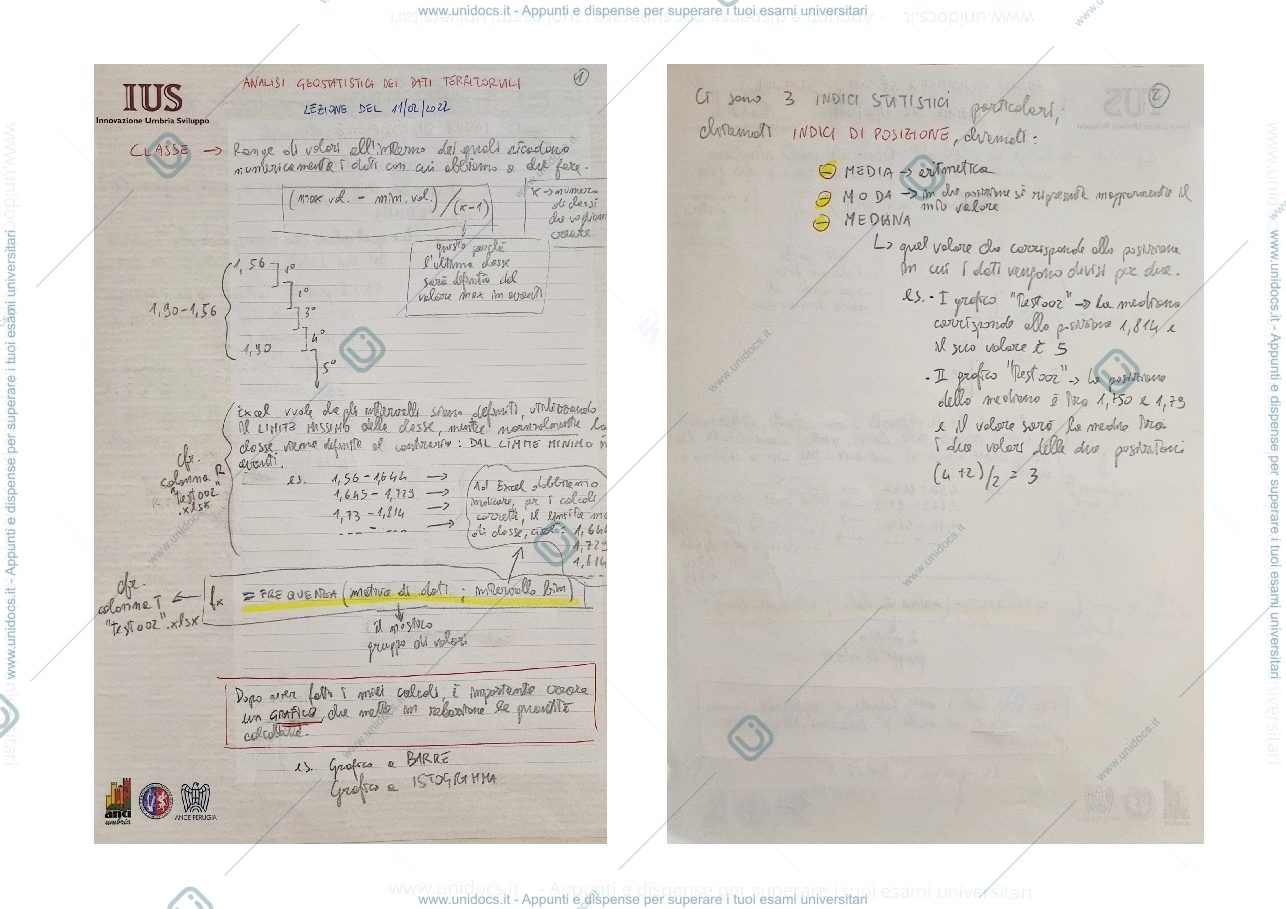 www.unidocs.it - Appunti e dispense per superare i tuoi esami universitari
IUS
Innovazione Umbria Sviluppo
ANALISI GEOSTATISTICA DEI DATI TERRITORIALI
1
LEZIONE DEL 11/02/2022
CLASSE → Range di valori all'interno dei quali ricadono
numericamente i dati con cui abbiamo a che fare.
(max val. - min. val.)/(x-1)
x → numero
di classi
che vogliamo
creare
questo perché
l'ultima classe
sarà definita dal
valore max in avanti
1,90-1,56
1,56
1°
2°
3°
4°
1,90
5°
Excel vuole che gli intervalli siano definiti, utilizzando
il LIMITE MASSIMO della classe, mentre normalmente la
classe viene definita al contrario: DAL LIMITE MINIMO in
avanti.
cfr.
colonna R
"Test002"
.xlsx
es. 1,56-1,644 →
1,645-1,729 →
1,73-1,814 →
--- - --- →
Ad Excel dobbiamo
indicare, per i calcoli
corretti, il limite
di classe, cioè: 1,644
1,729
1,814
---
cfr.
colonna T
"Test002".xlsx
← fx =FREQUENZA(matrice di dati; intervallo bin)
il nostro
gruppo di valori
Dopo aver fatto i miei calcoli, è importante creare
un GRAFICO, che metta in relazione le quantità
calcolate.
es. Grafico a BARRE
Grafico a ISTOGRAMMA
anci
umbria
ANCE PERUGIA
2
Ci sono 3 INDICI STATISTICI particolari,
chiamati INDICI DI POSIZIONE, chiamati:
- MEDIA → aritmetica
- MODA → in che posizione si ripresenta maggiormente il
mio valore
- MEDIANA
↳ quel valore che corrisponde alla posizione
in cui i dati vengono divisi per due.
es. - I grafico "Test002" → la mediana
corrisponde alla posizione 1,814 e
il suo valore è 5
- II grafico "Test002" → la posizione
della mediana è tra 1,750 e 1,79
e il valore sarà la media tra
i due valori delle due posizioni
(4+2)/2 = 3
www.unidocs.it - Appunti e dispense per superare i tuoi esami universitari